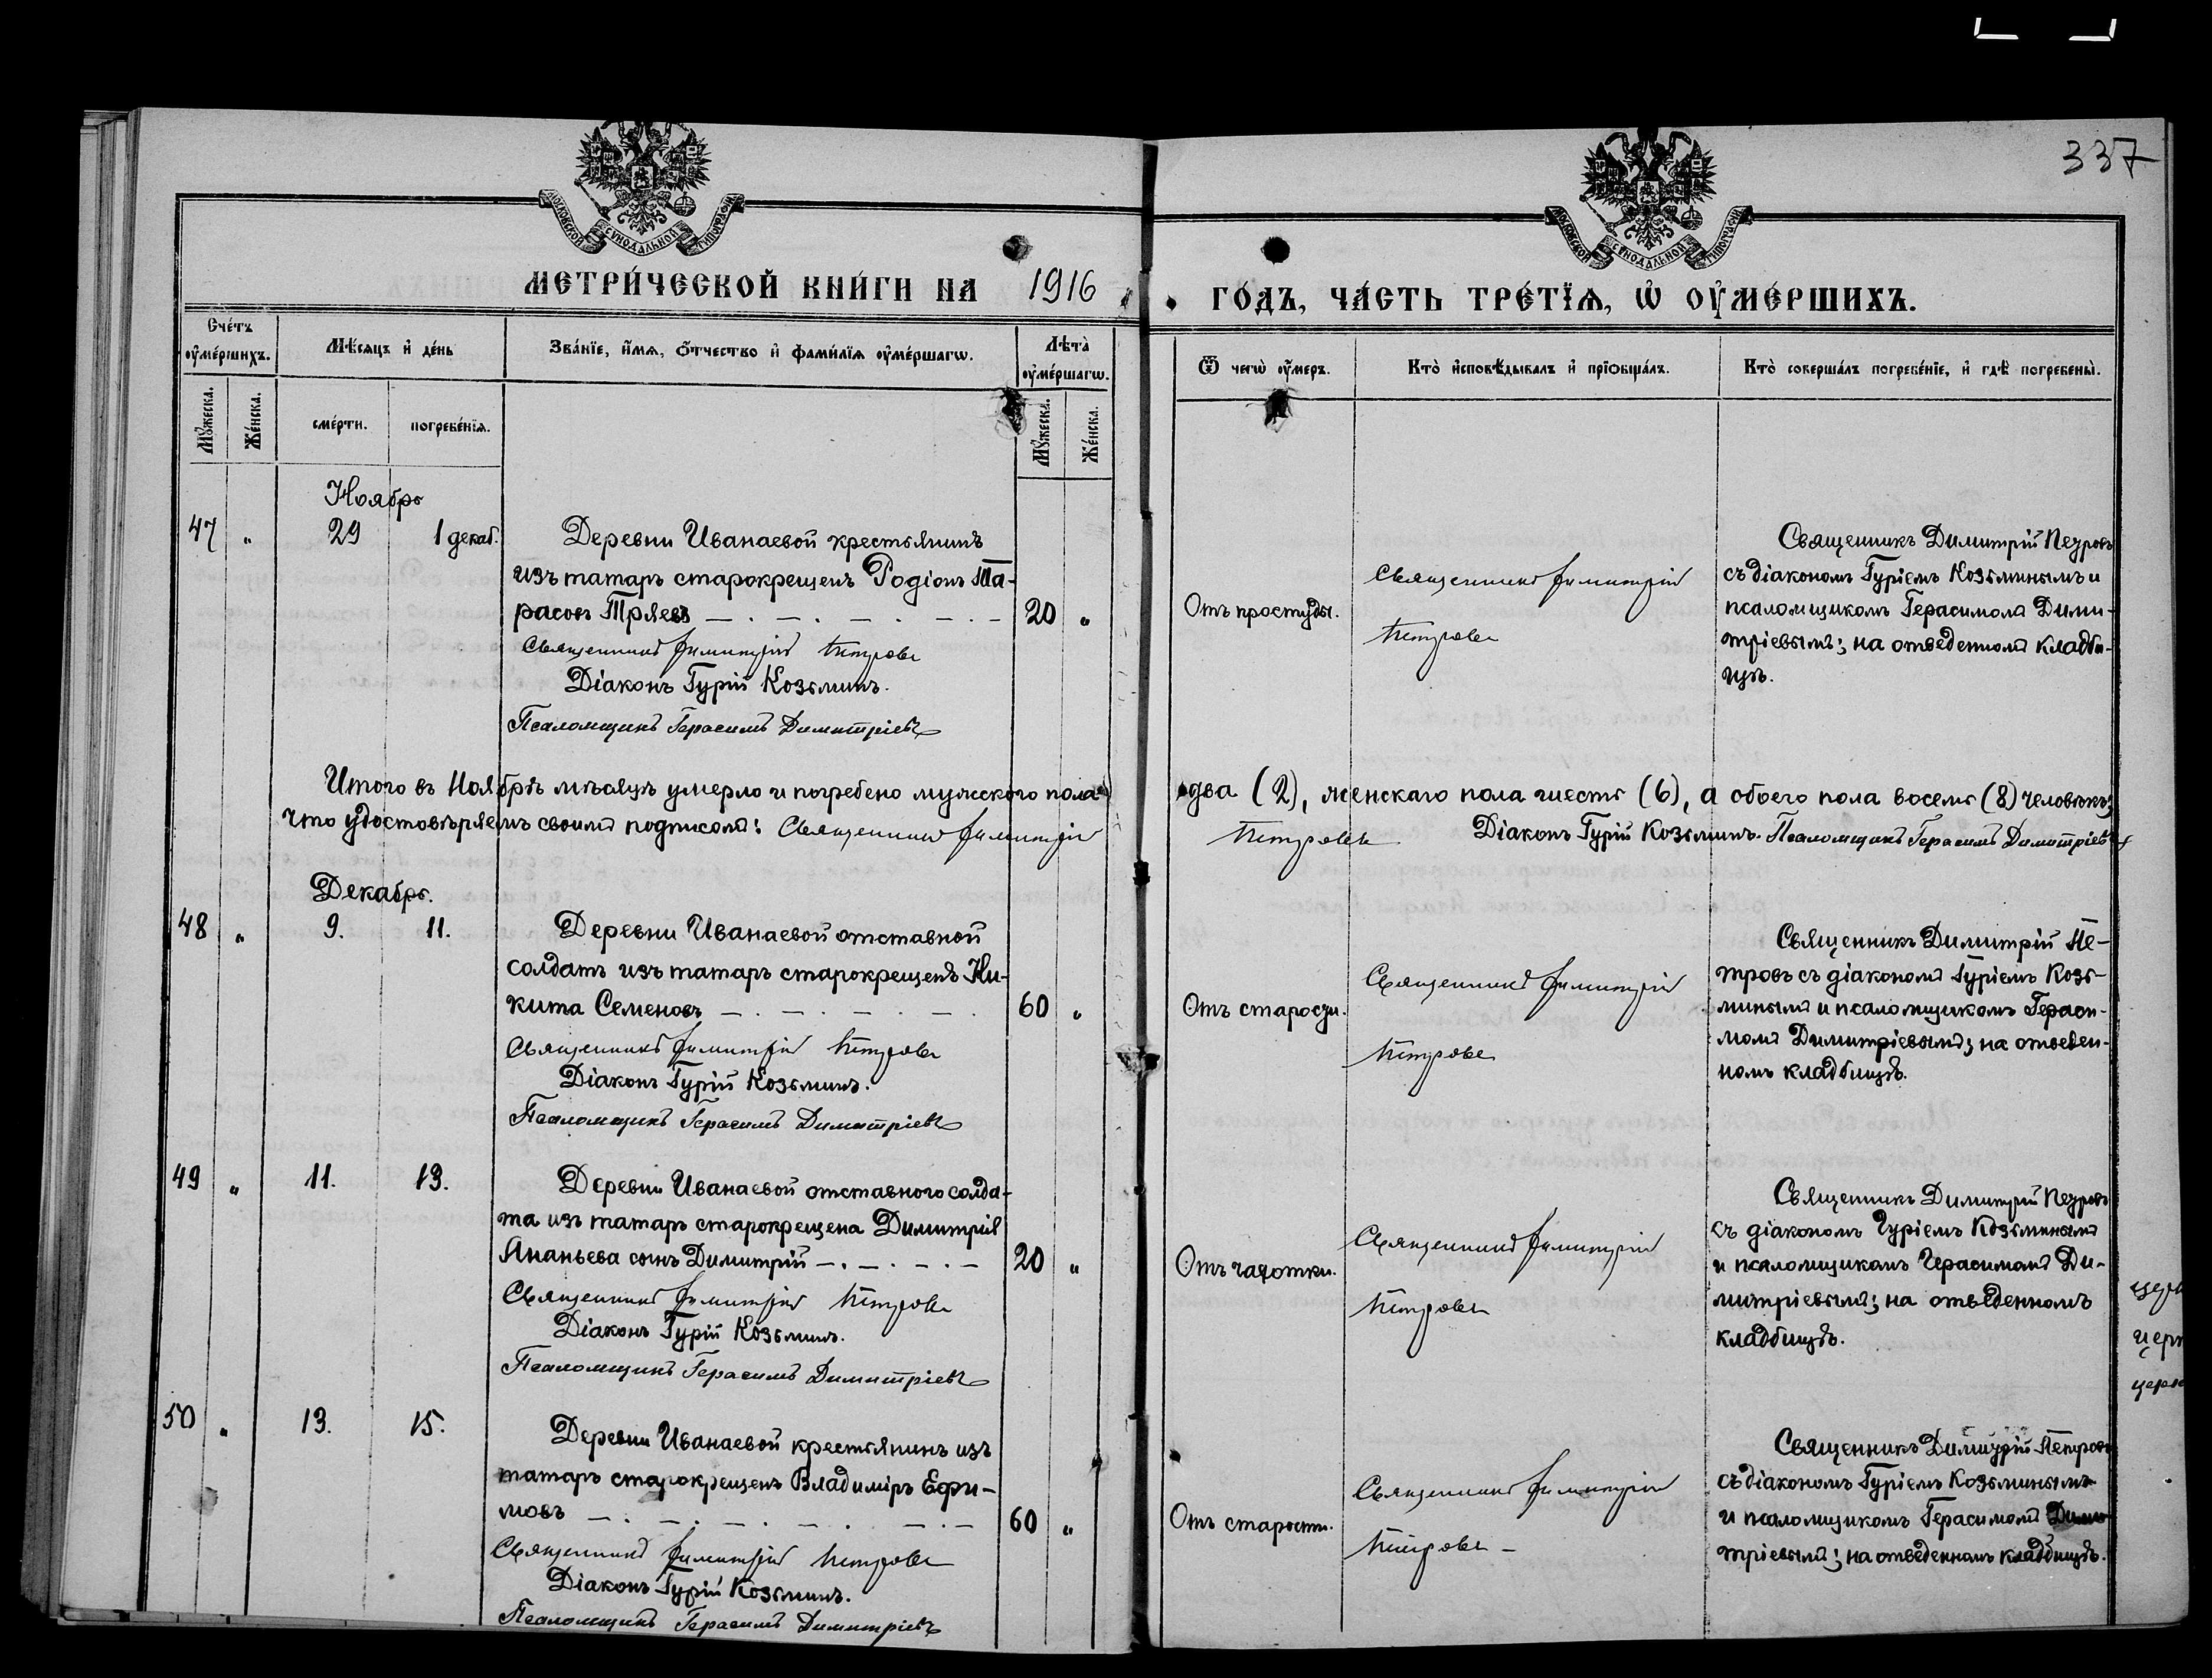 337
МОСКОВСКОЙ СѴНОДАЛЬНОЙ ТИПОГРАФІИ
МОСКОВСКОЙ СѴНОДАЛЬНОЙ ТИПОГРАФІИ
МЕТРИ́ЧЕСКОЙ КНИ́ГИ НА 1916
ГО́ДЪ, ЧА́СТЬ ТРЕ́ТЇѦ, Ѡ҆ ОУ҆МЕ́РШИХЪ.
Сче́тъ оу҆ме́ршихъ.
Мѣ́сяцъ и҆ де́нь
Зва́нїе, и҆́мѧ, ѻ҆́тчество и҆ фами́лїѧ оу҆ме́ршагѡ.
Лѣта̀ оу҆ме́ршагѡ.
Ѿ чегѡ̀ оу҆́меръ.
Кто̀ и҆сповѣ́дывалъ и҆ прїѻбща́лъ.
Кто̀ соверша́лъ погребе́нїе, и҆ гдѣ̀ погребены̀.
Мꙋ́жеска.
Же́нска.
сме́рти.
погребе́нїѧ.
Мꙋ́жеска.
Же́нска.
Ноябрь
47 " 29 1 декаб.
Деревни Иванаевой крестьянинъ
изъ татаръ старокрещенъ Родіонъ Та-
расовъ Тряевъ 20 "
Священникъ Димитрій Петровъ
Діаконъ Гурій Козьминъ.
Псаломщикъ Герасимъ Димитріевъ
Отъ простуды.
Священникъ Димитрій
Петровъ
Священникъ Димитрій Петровъ
съ діакономъ Гуріемъ Козьминымъ и
псаломщикомъ Герасимомъ Дими-
тріевымъ; на отведенномъ кладби-
щѣ.
Итого въ Ноябрѣ мѣсяцѣ умерло и погребено мужского пола два (2), женскаго пола шесть (6), а обоего пола восемь (8) человѣкъ;
что удостовѣряемъ своимъ подписомъ: Священникъ Димитрій Петровъ Діаконъ Гурій Козьминъ. Псаломщикъ Герасимъ Димитріевъ
Декабрь.
48 " 9. 11.
Деревни Иванаевой отставной
солдатъ изъ татаръ старокрещенъ Ни-
кита Семеновъ 60 "
Священникъ Димитрій Петровъ
Діаконъ Гурій Козьминъ.
Псаломщикъ Герасимъ Димитріевъ
Отъ старости.
Священникъ Димитрій
Петровъ
Священникъ Димитрій Пе-
тровъ съ діакономъ Гуріемъ Козь-
минымъ и псаломщикомъ Гераси-
момъ Димитріевымъ; на отведен-
номъ кладбищѣ.
49 " 11. 13.
Деревни Иванаевой отставного солда-
та изъ татаръ старокрещена Димитрія
Ананьева сынъ Димитрій 20 "
Священникъ Димитрій Петровъ
Діаконъ Гурій Козьминъ.
Псаломщикъ Герасимъ Димитріевъ
Отъ чахотки.
Священникъ Димитрій
Петровъ
Священникъ Димитрій Петровъ
съ діакономъ Гуріемъ Козьминымъ
и псаломщикомъ Герасимомъ Ди-
митріевымъ; на отведенномъ
кладбищѣ.
50 " 13. 15.
Деревни Иванаевой крестьянинъ изъ
татаръ старокрещенъ Владиміръ Ефи-
мовъ 60 "
Священникъ Димитрій Петровъ
Діаконъ Гурій Козьминъ.
Псаломщикъ Герасимъ Димитріевъ
Отъ старости.
Священникъ Димитрій
Петровъ
Священникъ Димитрій Петровъ
съ діакономъ Гуріемъ Козьминымъ
и псаломщикомъ Герасимомъ Дими-
тріевымъ; на отведенномъ кладбищѣ.